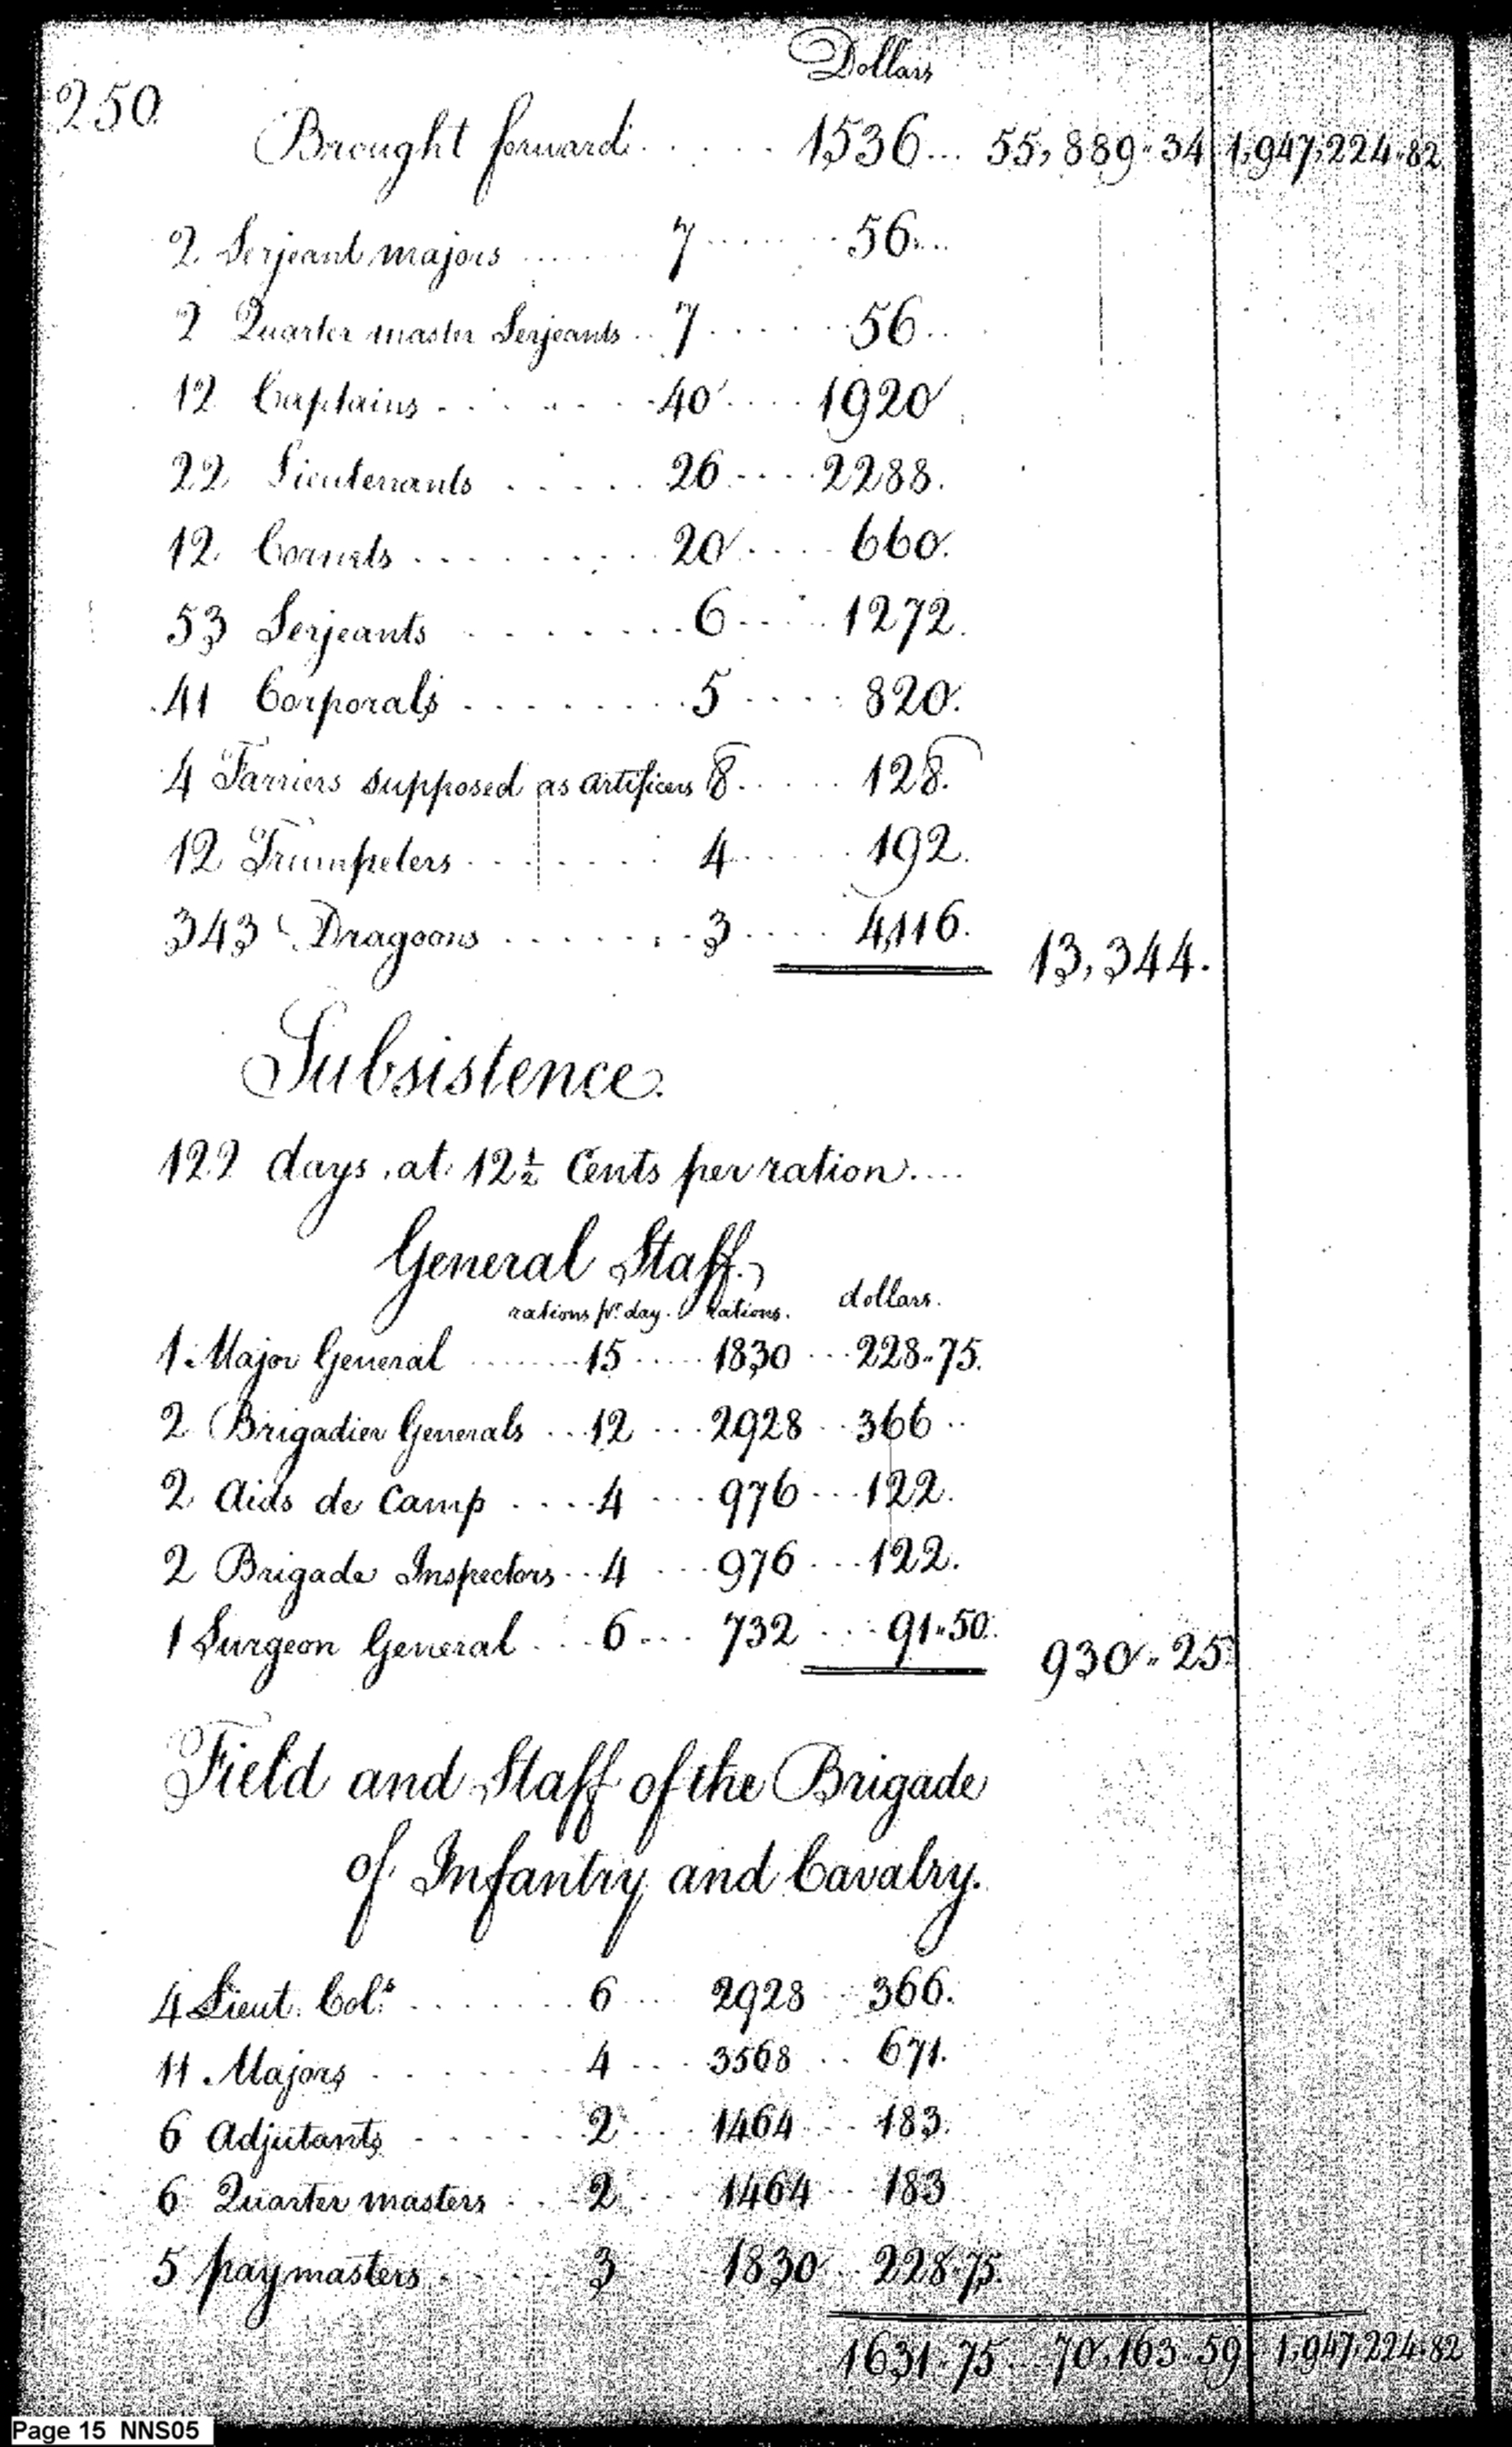 250
Dollars
Brought forward ..... 1536... 55,889.34 1,947,224.82
2 Serjeant majors ...... 7 ...... 56...
2 Quarter master Serjeants .. 7 ...... 56..
12 Captains ........ 40 .... 1920
22 Lieutenants ..... 26 .... 2288.
12 Cornets ......... 20 .... 660.
53 Serjeants ....... 6 .... 1272.
41 Corporals ........ 5 .... 820.
4 Farriers supposed as artificers 8 ..... 128.
12 Trumpeters ....... 4 ..... 192.
343 Dragoons ....... 3 .... 4,116.
13,344.
Subsistence.
122 days at 12½ Cents per ration....
General Staff.
rations pr. day. Rations. dollars.
1 Major General ...... 15 ..... 1830 ... 228.75.
2 Brigadier Generals ... 12 ... 2928 .. 366 ..
2 Aids de Camp .... 4 ... 976 ... 122.
2 Brigade Inspectors .. 4 ... 976 ... 122.
1 Surgeon General ... 6 ... 732 ... 91.50.
930.25
Field and Staff of the Brigade
of Infantry and Cavalry.
4 Lieut. Cols. ....... 6 ... 2928 .. 366.
11 Majors ....... 4 ... 3568 .. 671.
6 Adjutants ..... 2 ... 1464 ... 183.
6 Quarter masters ... 2 ... 1464 .. 183
5 paymasters ..... 3 1830 .. 228.75.
1631.75 ... 70,163.59 1,947,224.82
Page 15 NNS05